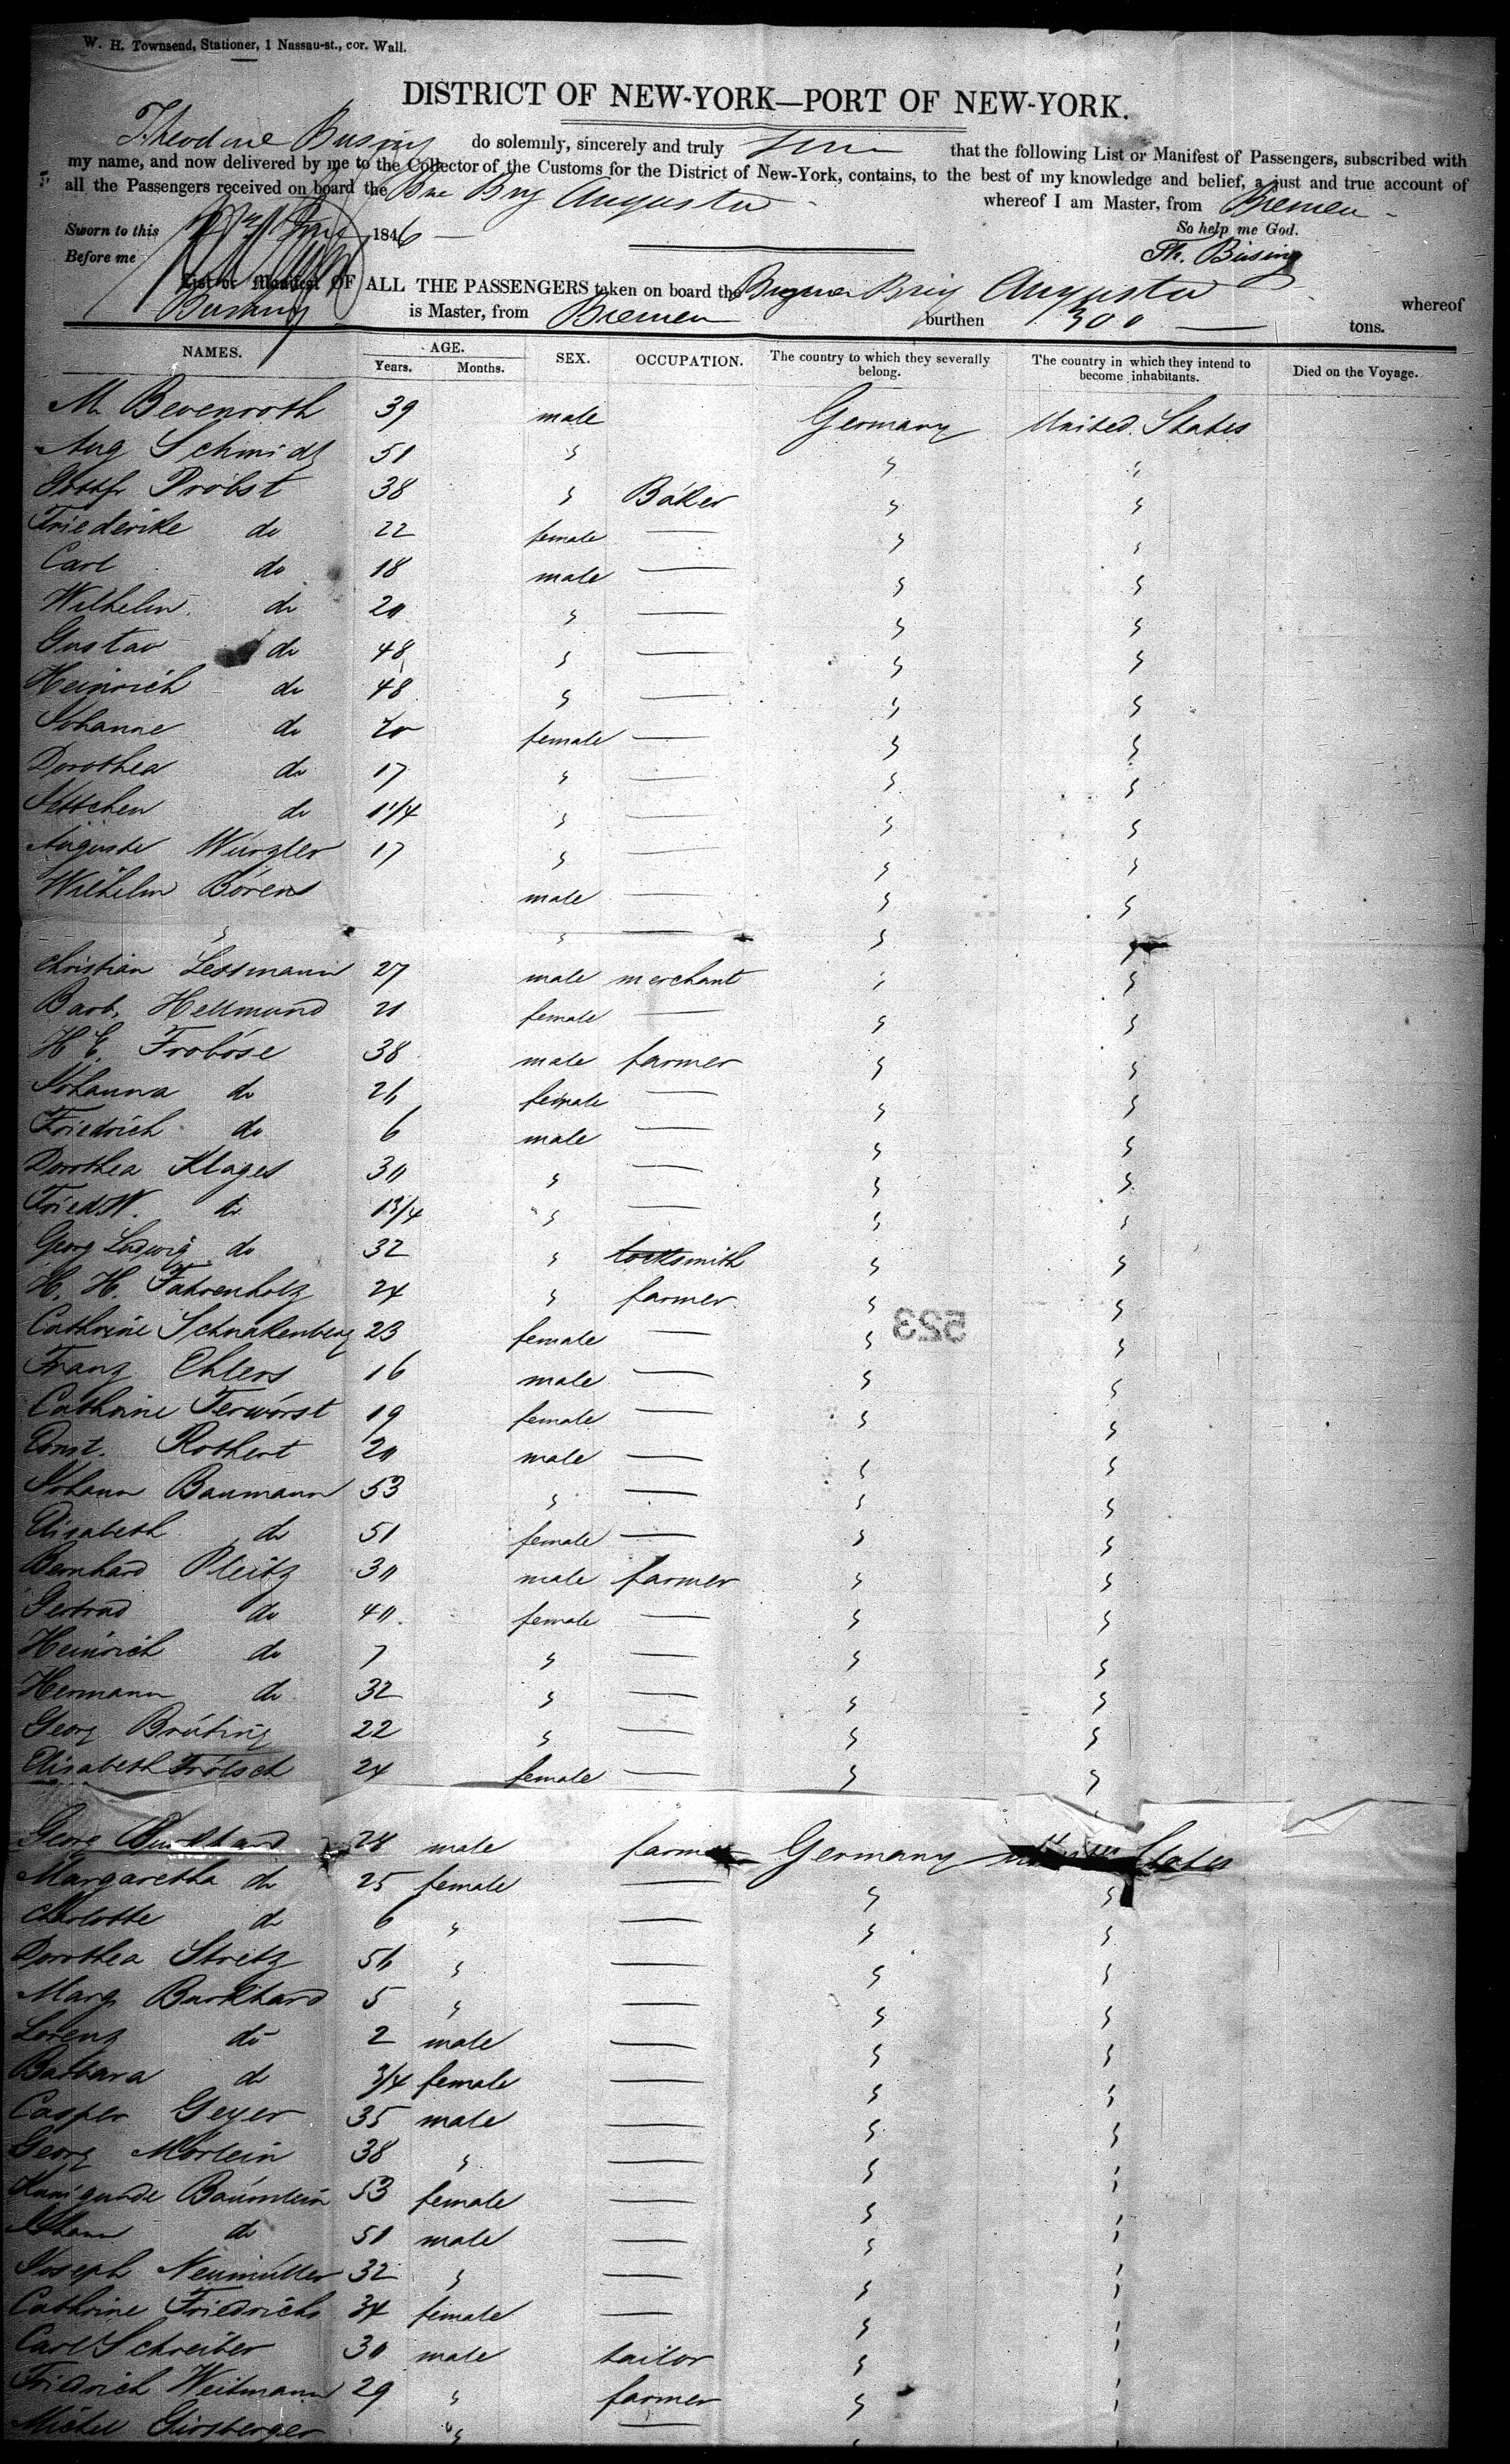 W. H. Townsend, Stationer, 1 Nassau-st., cor. Wall.
DISTRICT OF NEW-YORK—PORT OF NEW-YORK.
Theodore Busing do solemnly, sincerely and truly that the following List or Manifest of Passengers, subscribed with
my name, and now delivered by me to the Collector of the Customs for the District of New-York, contains, to the best of my knowledge and belief, a just and true account of
all the Passengers received on board the Brig Augusta whereof I am Master, from Bremen
Sworn to this 1846 So help me God.
Before me Th. Büsing
List or Manifest OF ALL THE PASSENGERS taken on board the Brig Augusta whereof
Busing is Master, from Bremen burthen 300 tons.
NAMES. AGE. Years. Months. SEX. OCCUPATION. The country to which they severally belong. The country in which they intend to become inhabitants. Died on the Voyage.
M. Bevenroth 39 male Germany United States
Aug Schmidt 51 "
Probst 38 " Baker
Friederike do 22 female
Carl do 18 male
Wilhelm do 20 "
Gustav do 48 "
Heinrich do 48 "
Johanne do female
Dorothea do 17 "
Nettchen do 1 1/4 "
Auguste Würzler 17 "
Wilhelm Börens male
" "
Christian Lessmann 27 male merchant
Barb. Hellmund 21 female
H. E. Froböse 38 male farmer
Johanna do 26 female
Friedrich do 6 male
Dorothea Klages 30 "
Fried. W. do 1 3/4 "
Georg Ludwig do 32 " locksmith
H. H. Fahrenholz 24 " farmer
523
Cathrine Schnakenberg 23 female
Franz Ehlers 16 male
Cathrine Terwörst 19 female
Const. Rothert 20 male
Johann Baumann 53 "
Elisabeth do 51 female
Bernhard Pleitz 30 male farmer
Gertrud do 40 female
Heinrich do 7 "
Hermann do 32 "
Georg Brüting 22 "
Elisabeth Frötsch 24 female
Georg Burkhard 28 male farmer Germany United States
Margaretha do 25 female
Charlotte do 6 "
Dorothea Stretz 56 "
Marg Burkhard 5 "
Lorenz do 2 male
Barbara do 3/4 female
Casper Geyer 35 male
Georg Mörlein 38 "
Kunigunde Bäumlein 53 female
Johann do 51 male
Joseph Neumüller 32 "
Cathrine Friedrichs 34 female
Carl Schreiber 30 male tailor
Friedrich Weitmann 29 " farmer
Michel Girsberger "